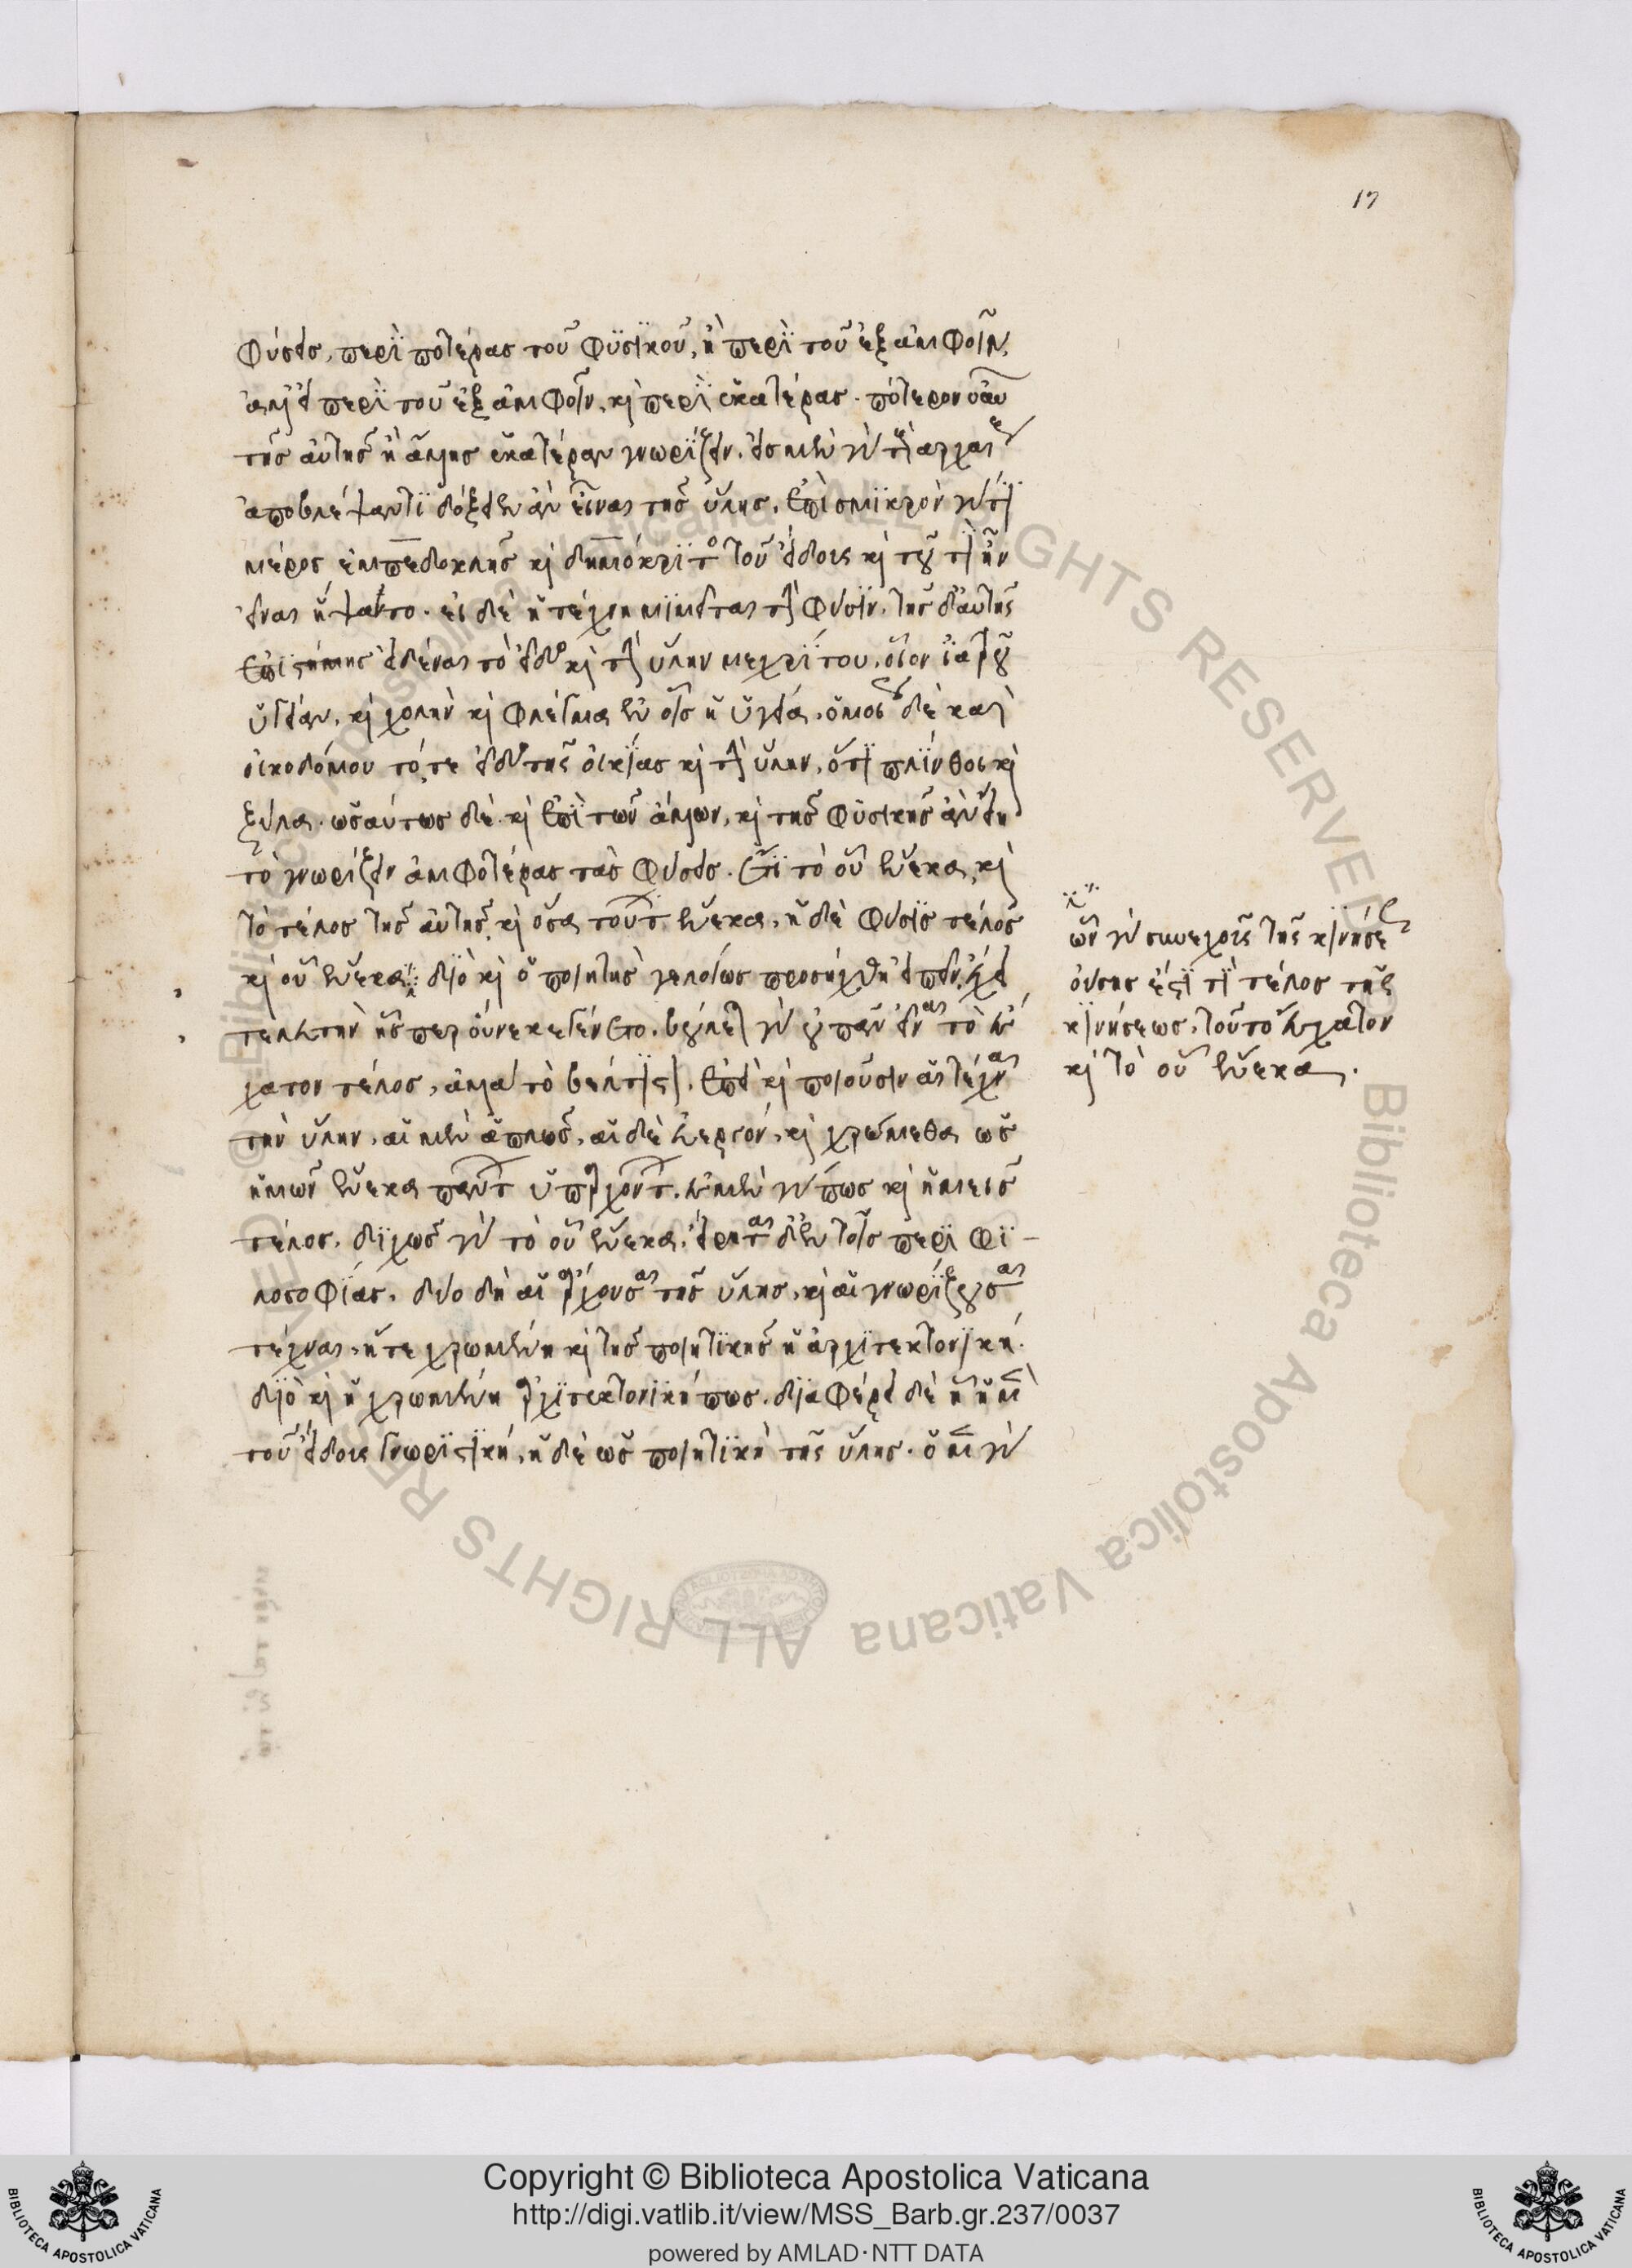 17
φύσεις, περὶ ποτέρας τοῦ φυσικοῦ, ἢ περὶ τοῦ ἐξ ἀμφοῖν,
ἀλλ' εἰ περὶ τοῦ ἐξ ἀμφοῖν, καὶ περὶ ἑκατέρας. πότερον οὖν
τῆς αὐτῆς ἢ ἄλλης ἑκατέραν γνωρίζειν. εἰς μὲν γὰρ τοὺς ἀρχαίους
ἀποβλέψαντι δόξειεν ἂν εἶναι τῆς ὕλης. ἐπὶ σμικρὸν γάρ τι
μέρος ἐμπεδοκλῆς καὶ δημόκριτος τοῦ εἴδους καὶ τοῦ τί ἦν
εἶναι ἥψαντο. εἰ δὲ ἡ τέχνη μιμεῖται τὴν φύσιν. τῆς δ' αὐτῆς
ἐπιστήμης εἰδέναι τὸ εἶδος καὶ τὴν ὕλην μέχρι του. οἷον ἰατροῦ
ὑγίειαν, καὶ χολὴν καὶ φλέγμα ἐν οἷς ἡ ὑγίεια. ὁμοίως δὲ καὶ
οἰκοδόμου τό, τε εἶδος τῆς οἰκίας καὶ τὴν ὕλην, ὅτι πλίνθοι καὶ
ξύλα. ὡσαύτως δὲ καὶ ἐπὶ τῶν ἄλλων, καὶ τῆς φυσικῆς ἂν εἴη
τὸ γνωρίζειν ἀμφοτέρας τὰς φύσεις. ἔτι τὸ οὗ ἕνεκα, καὶ
τὸ τέλος τῆς αὐτῆς, καὶ ὅσα τούτων ἕνεκα, ἡ δὲ φύσις τέλος
καὶ οὗ ἕνεκα διὸ καὶ ὁ ποιητὴς γελοίως προσήχθη εἰπεῖν, ἔχει
τελευτὴν ἧς περ οὕνεκ' ἐγένετο. βούλεται γὰρ οὐ πᾶν εἶναι τὸ ἔσ
χατον τέλος, ἀλλὰ τὸ βέλτιστον. ἐπεὶ καὶ ποιοῦσιν αἱ τέχναι
τὴν ὕλην, αἱ μὲν ἁπλῶς, αἱ δὲ εὐεργόν, καὶ χρώμεθα ὡς
ἡμῶν ἕνεκα πάντων ὑπαρχόντων. ἐσμὲν γάρ πως καὶ ἡμεῖς
τέλος. διχῶς γὰρ τὸ οὗ ἕνεκα. εἴρηται δ' ἐν τοῖς περὶ φι-
λοσοφίας. δύο δὴ αἱ ἄρχουσαι τῆς ὕλης, καὶ αἱ γνωρίζουσαι
τέχναι, ἥ τε χρωμένη καὶ τῆς ποιητικῆς ἡ ἀρχιτεκτονική.
διὸ καὶ ἡ χρωμένη ἀρχιτεκτονική πως. διαφέρει δὲ ᾗ ἡ μὲν
τοῦ εἴδους γνωριστική, ἡ δὲ ὡς ποιητικὴ τῆς ὕλης. ὁ μὲν γὰρ
ὧν γὰρ συνεχοῦς τῆς κινήσεως
οὔσης ἐστί τι τέλος τῆς
κινήσεως, τοῦτο ἔσχατον
καὶ τὸ οὗ ἕνεκα.
Copyright © Biblioteca Apostolica Vaticana
http://digi.vatlib.it/view/MSS_Barb.gr.237/0037
powered by AMLAD·NTT DATA
BIBLIOTECA APOSTOLICA VATICANA
BIBLIOTECA APOSTOLICA VATICANA
© Biblioteca Apostolica Vaticana ALL RIGHTS RESERVED
Biblioteca Apostolica Vaticana ALL RIGHTS RESERVED